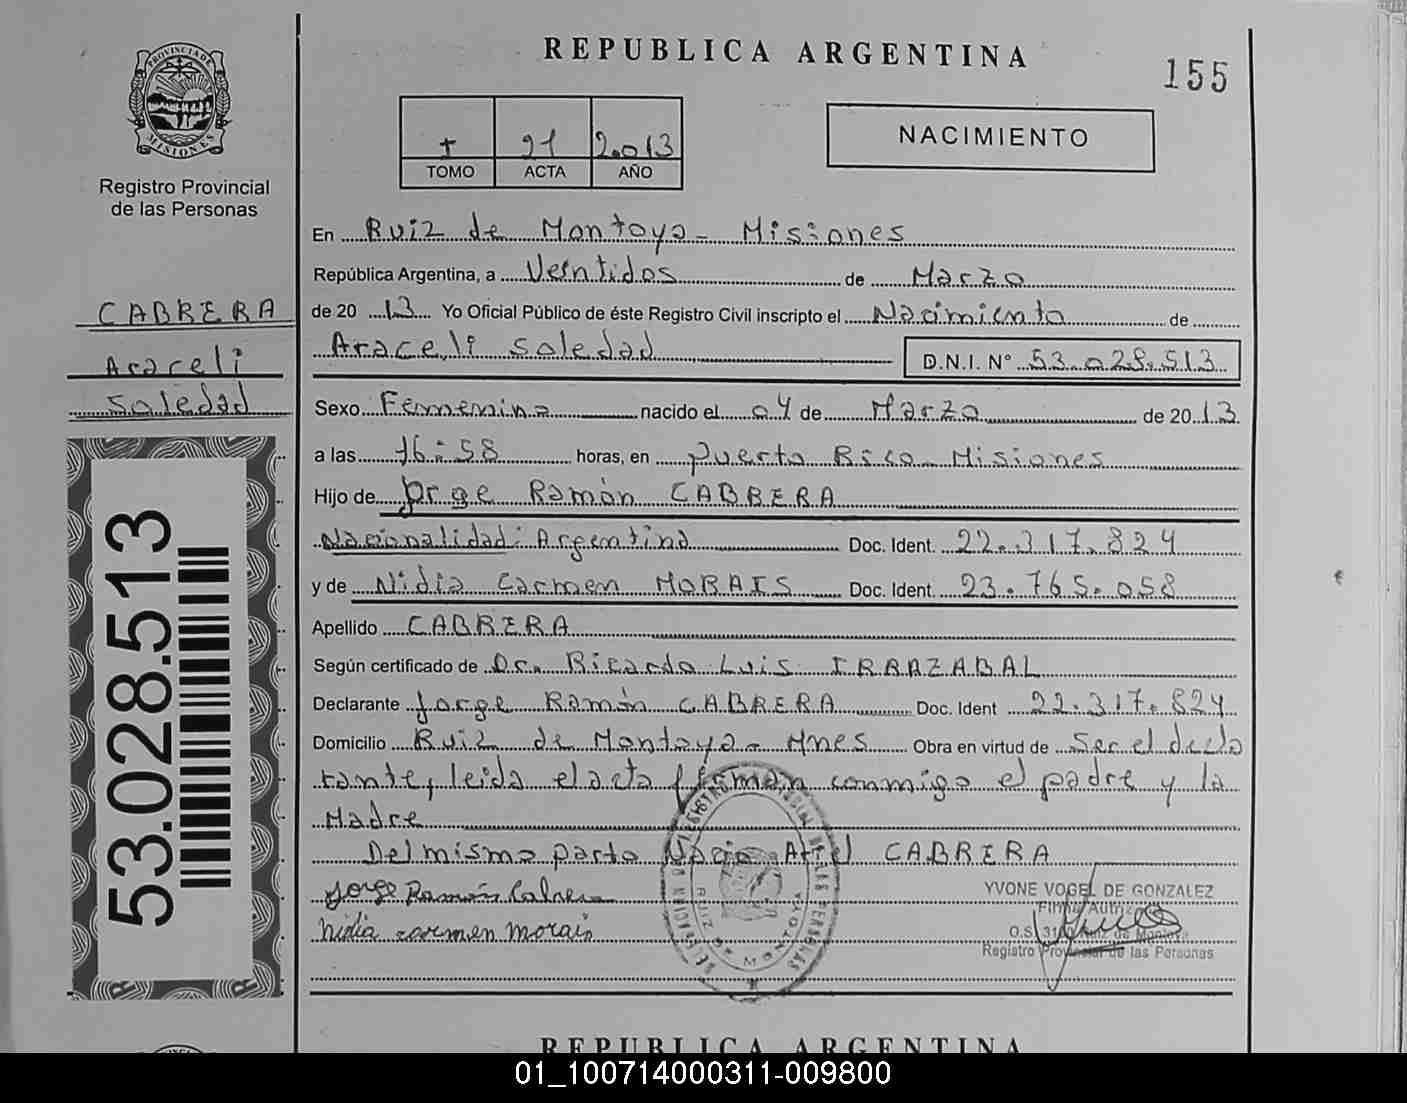 REPUBLICA ARGENTINA
155
PROVINCIA DE MISIONES
Registro Provincial
de las Personas
I 91 2.013
TOMO ACTA AÑO
NACIMIENTO
CABRERA
Araceli
Soledad
53.028.513
En Ruiz de Montoya - Misiones
República Argentina, a Veintidos de Marzo
de 20 13 Yo Oficial Público de éste Registro Civil inscripto el Nacimiento de
Araceli Soledad D.N.I. N° 53.028.513
Sexo Femenino nacido el 04 de Marzo de 20 13
a las 16:58 horas, en Puerto Rico - Misiones
Hijo de Jorge Ramón CABRERA
Nacionalidad: Argentina Doc. Ident. 22.317.824
y de Nidia Carmen MORAIS Doc. Ident. 23.765.058
Apellido CABRERA
Según certificado de Dr. Ricardo Luis IRRAZABAL
Declarante Jorge Ramón CABRERA Doc. Ident 22.317.824
Domicilio Ruiz de Montoya - Mnes Obra en virtud de Ser el decla
rante, leida el acta firman conmigo el padre y la
Madre
Del mismo parto Nacio Ariel CABRERA
Jorge Ramón Cabrera
Nidia carmen morais
RUIZ DE MONTOYA
YVONE VOGEL DE GONZALEZ
Registro Provincial de las Personas
REPUBLICA ARGENTINA
01_100714000311-009800